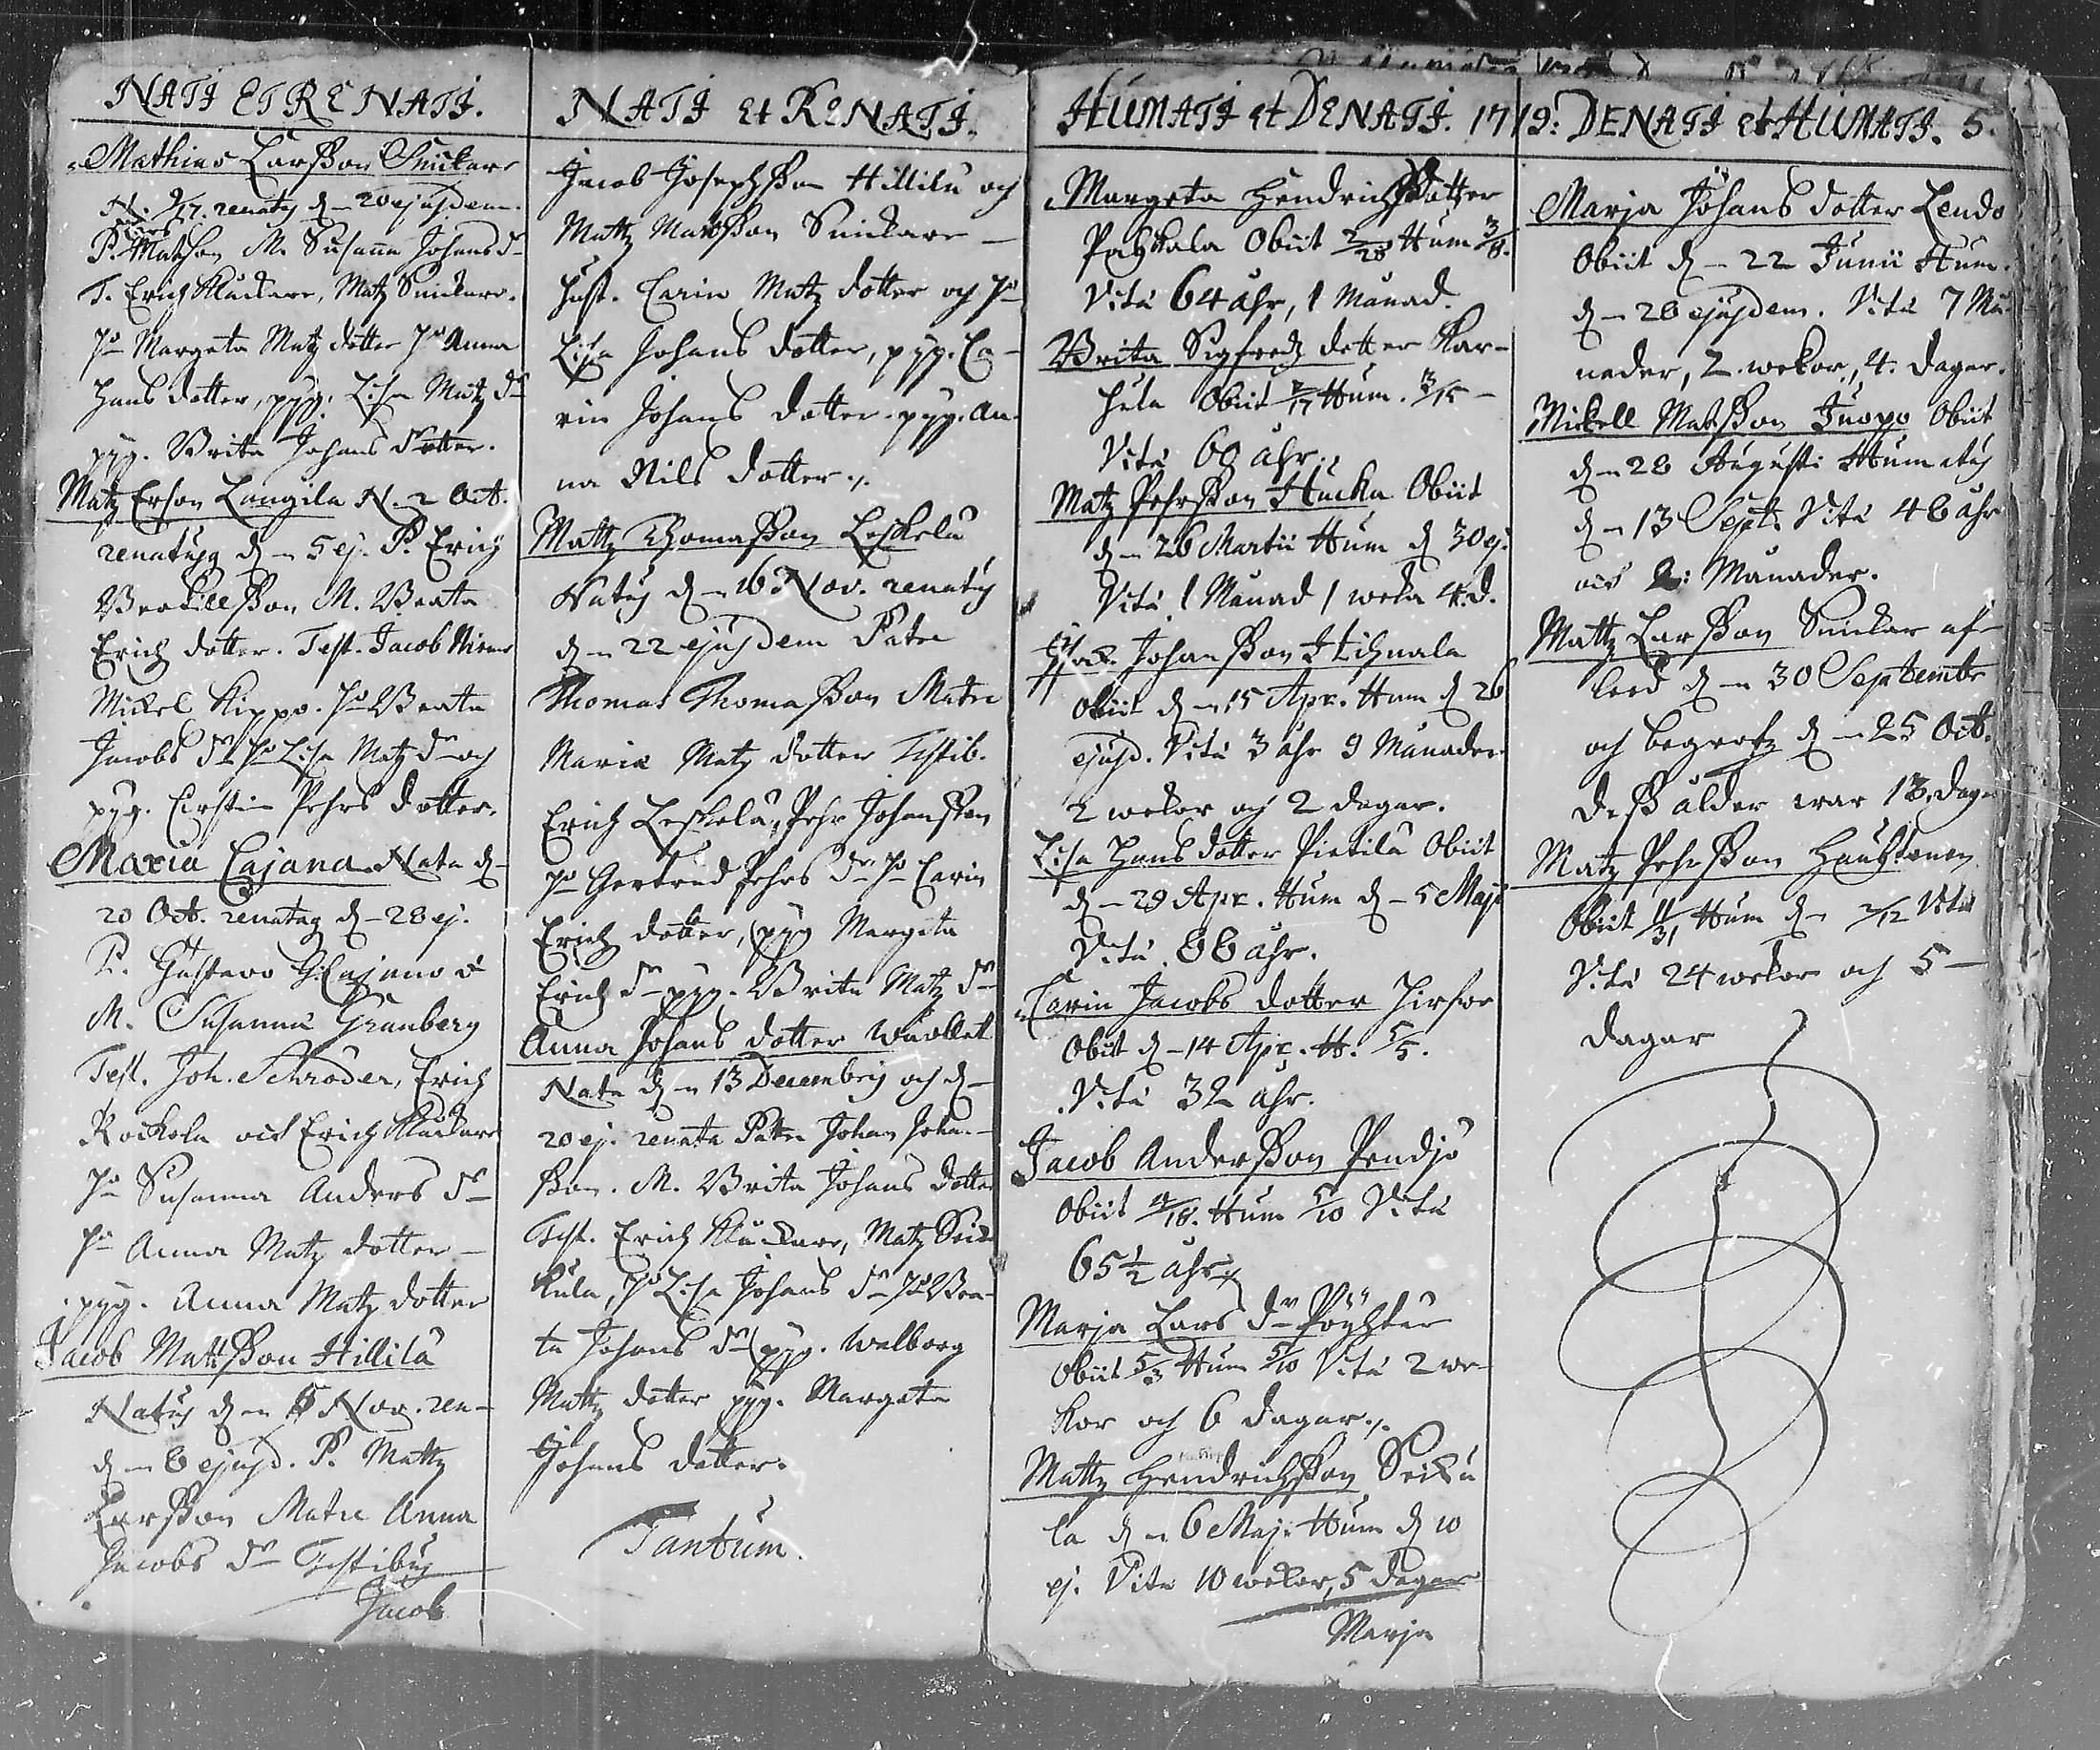 NATI ET RENATI.
Mathias Larsson Snickare
N. 9/17. renatq d. 20 ejusdem.
Lars
P. Matson M. Susanna Johans dr
T. Erich Kluckare, Matz Snickare.
Ho Margeta Matz dotter Ho Anna
Hans dotter, pyg. Lisa Matz dr
pyg. Brita Johans dotter.
Matz Erson Langila N. 2 Oct.
renatus d. 5 ej. P. Erich
Bertillsson M. Beata
Erich dotter. Test. Jacob
Mickel Kippo. Ho Beata
Jacobs dr Ho Lisa Matz dr och
pyg. Cirstin Pehrs dotter.
Maria Cajana Nata d.
20 Oct. renatag d. 28 ej.
P. Gustavo G. Cajano &
M. Susanna Granberg
Test. Joh. Schroder, Erich
Rockola och Erich Kluckare
Ho Susanna Anders dr
Ho Anna Matz dotter
pyg. Anna Matz dotter
Jacob Mattsson Hillilä
Natus den 5 Nov. ren-
den 8 ejusd. P. Mattz
Larsson Matre Anna
Jacobs dr Testibus
Jacob
NATI et RENATI.
Jacob Josephsson Hillilä och
Mattz Matsson Snickare
Hust. Carin Matz dotter och Ho
Lisa Johans dotter, pyg. Ca-
rin Johans dotter. pyg. An-
na Nils dotter.
Mattz Thomasson Leskelä
Natus den 16 Nov. renatus
den 22 ejusdem Patre
Thomas Thomasson Matre
Maria Matz dotter Testib.
Erich Leskelä, Pehr Johansson
Ho Gertrud Pehrs dr Ho Carin
Erich dotter, pyg Margeta
Erich dr pyg. Brita Matz dr
Anna Johans dotter Wuollet
Nata den 13 Decembris och d.
20 ej. renata Patre Johan Johan-
sson. M. Brita Johans dotter
Test. Erich Kluckare, Matz Seik-
kula, Ho Lisa Johans dr Ho Bea-
ta Johans dr pyg. Walborg
Mattz dotter pyg. Margeta
Johans dotter.
Tantum.
HUMATI et DENATI. 1719: DENATI et HUMATI. 5.
Margeta Hendrichs dotter
Pahkala Obiit 2/28 Hum 3/8.
Vitæ 64 ahr, 1 Månad.
Brita Sigfredz dotter Kar-
hula Obiit 2/17 Hum. 3/15
Vitæ 60 ahr.
Matz Pehrsson Hucka Obiit
d. 26 Martii Hum d 30 ej.
Vitæ 1 Månad 1 weka 4. d.
Isac Johansson Hihnala
Obiit den 15 Apr. Hum d 26
ejusd. Vitæ 3 ahr 9 Månader
2 wekor och 2 dagar.
Lisa Hans dotter Pietilä Obiit
d. 29 Apr. Hum d. 5 Maji
Vitæ 88 ahr.
Carin Jacobs dotter
Obiit d. 14 Apr. H. 5/5.
Vitæ 32 ahr.
Jacob Andersson Pendjo
Obiit 4/18. Hum 5/10 Vitæ
65 1/2 ahr
Marja Lars dr Pöyhtär
Obiit 5/3 Hum 5/10 Vitæ 2 we-
kor och 6 dagar.
Mattz Hendrichsson Seiku
la den 6 Maji Hum d 10
ej. Vitæ 10 wekor, 5 dagar
Marja
Marja Johans dotter Lendo
Obiit d. 22 Junii Hum.
d. 28 ejusdem. Vitæ 7 Må-
nader, 2. wekor, 4. dagar.
Mickell Matsson Juopo Obiit
d. 28 Augusti Humatus
d. 13 Sept. Vitæ 48 ahr
och 2: Månader.
Mattz Larsson Snickar af-
leed den 30 Septembr
och begrofz d. 25 Oct.
dess ålder war 13. dagar
Matz Pehrsson Hauhtonen
Obiit 11/31 Hum d. 7/12
Vitæ 24 wekor och 5
dagar